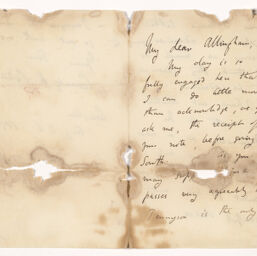 My dear Allingham,
My day is so
fully engaged here that
I can do little more
than acknowledge, as you
ask me, the receipt of
your note, before going
South. is you
may
passes very agreeably
Tennyson is the only